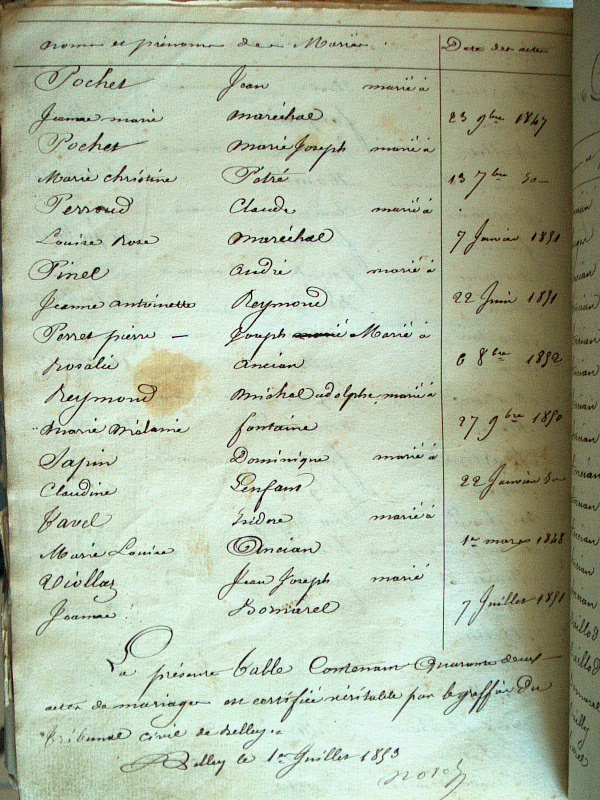 noms et prénoms des Mariés. Date des actes
Pochet Jean marié à
Jeanne marie maréchal 23 9bre 1847
Pochet marie Joseph marié à
Marie christine Patré 13 7bre 50
Perroud Claude marié à
Louise Rose maréchal 7 Janvier 1851
Pinel andré marié à
Jeanne antoinette Reymond 22 Juin 1851
Perret pierre – Joseph marié Marié à
Rosalie ancian 6 8bre 1852
Reymond michel adolphe marié à
marie Mélanie fontaine 27 9bre 1850
Sapin Dominique marié à
Claudine Lenfant 22 Janvier 50
Tavel Isidore marié à
Marie Louise Ancian 1er mars 1848
Viollaz Jean Joseph marié
Jeanne Bomarel 7 Juillet 1851
La présente table Contenant Quarante deux
actes de mariages est certifiée véritable par le greffier Du
tribunal civil de Belley.
Belley le 1er Juillet 1853